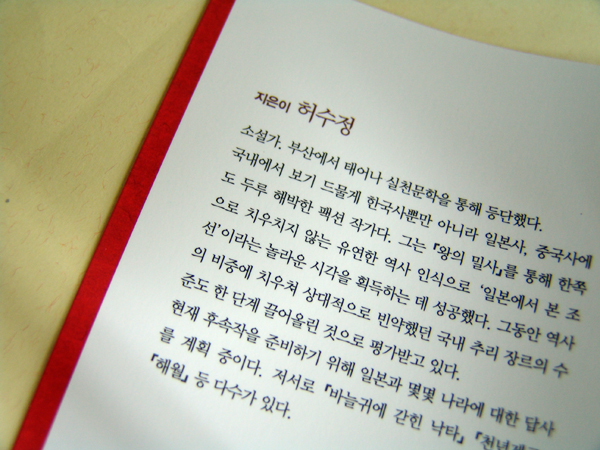 지은이 허수정
소설가. 부산에서 태어나 실천문학을 통해 등단했다.
국내에서 보기 드물게 한국사뿐만 아니라 일본사, 중국사에
도 두루 해박한 팩션 작가다. 그는 『왕의 밀사』를 통해 한쪽
으로 치우치지 않는 유연한 역사 인식으로 ‘일본에서 본 조
선’이라는 놀라운 시각을 획득하는 데 성공했다. 그동안 역사
의 비중에 치우쳐 상대적으로 빈약했던 국내 추리 장르의 수
준도 한 단계 끌어올린 것으로 평가받고 있다.
현재 후속작을 준비하기 위해 일본과 몇몇 나라에 대한 답사
를 계획 중이다. 저서로 『바늘귀에 갇힌 낙타』
『해월』 등 다수가 있다.